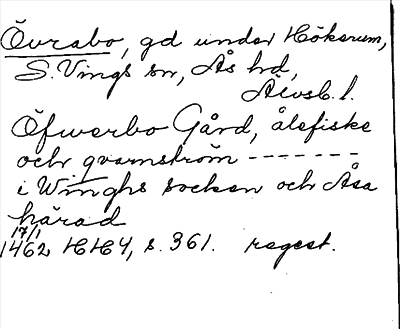 Övrabo, gd under Hökerum,
S. Vings sn, Ås hd,
Älvsb. l.
Öfwerbo Gård, ålefiske
och qvarnström -------
i Winghs socken och Åsa
härad
17/1
1462 HH4, s. 361. regest.